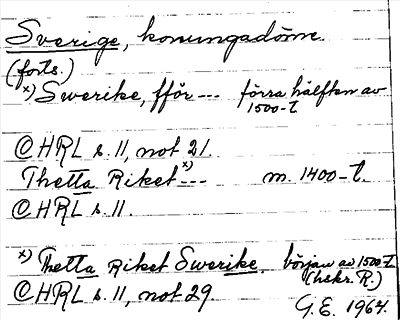 Sverige, konungadöme.
(forts.)
x) Swerike, fför --- förra hälften av
1500-t.
@ HRL s. 11, not 21.
Thetta Riket x) --- m. 1400-t.
@ HRL s. 11.
x) Thetta Riket Swerike. början av 1500-t.
(hskr. R.)
@ HRL s. 11, not 29.
G.E. 1964.